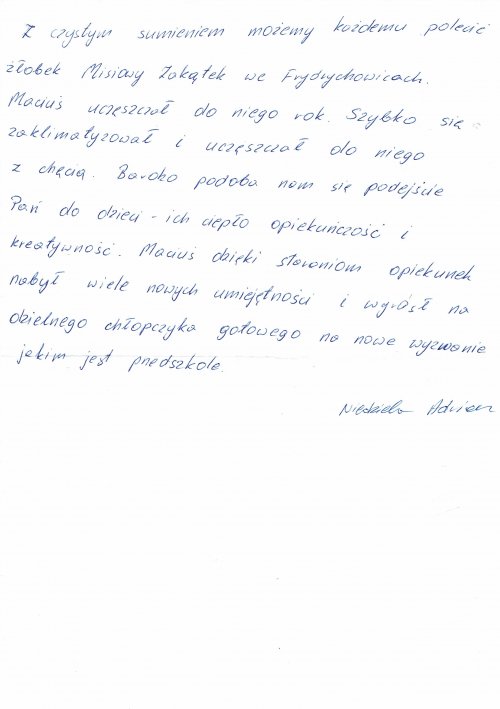 Z czystym sumieniem możemy każdemu polecić
żłobek Misiowy Zakątek we Frydrychowicach.
Maciuś uczęszczał do niego rok. Szybko się
zaklimatyzował i uczęszczał do niego
z chęcią. Bardzo podoba nam się podejście
Pań do dzieci - ich ciepło opiekuńczość i
kreatywność. Maciuś dzięki staraniom opiekunek
nabył wiele nowych umiejętności i wyrósł na
dzielnego chłopczyka gotowego na nowe wyzwanie
jakim jest przedszkole.
Niedziela Adrian